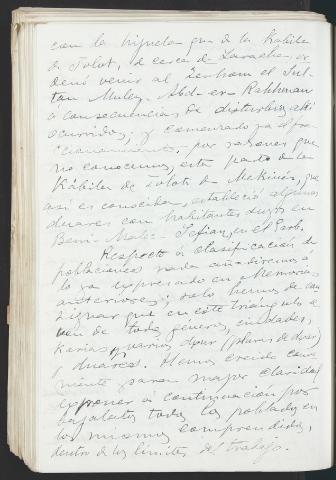 con la            que de la Kábila
de Tolot, de cerca de Larache, or-
denó venir al            el Sul-
tan Muley Abd-er-Rahhman
á consecuencia de disturbios allí
ocurridos; y comenzado ya el fra-
ccionamiento, por razones que
no conocemos, esta parte de la
Kábila de Tolots de Mekinés, que
así es conocida, estableció algunos
duares con habitantes suyos en
Beni-Malec-Sofian, en el Garb.
Respecto á clasificación de
poblaciones nada añadiremos á
lo ya expresado en Memorias
anteriores; solo hemos de con-
signar que en este triángulo se
ven de todo género, ciudades,
Karias y varios dxur (plural de dxar)
y duares. Hemos creido conve-
niente para mayor claridad
exponer á continuación por
           todos los poblados en
los mismos comprendidos,
dentro de los límites del trabajo.